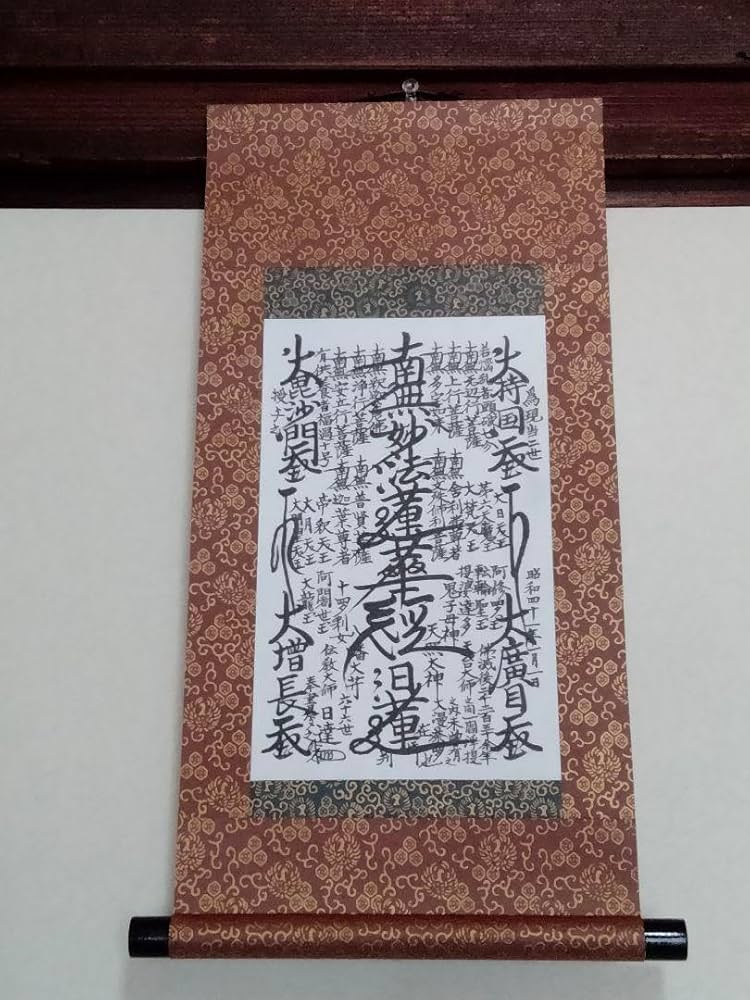 為現当二世
昭和四十一年一月一日
大持国天王
大廣目天王
若悩乱者頭破七分
大日天王
阿修羅王
佛滅後二千二百三十余年
南無無辺行菩薩
第六天魔王
転輪聖王
之間一閻浮提
南無上行菩薩
大梵天王
提婆達多
天台大師
之内未曾有之
南無多宝如来
南無舎利弗尊者
鬼子母神
大漫荼羅也
南無文殊師利菩薩
天照大神
南無妙法蓮華経 日蓮
判
南無普賢菩薩
八幡大菩薩
南無浄行菩薩
南無迦葉尊者
十羅刹女
六十六世
日達
南無安立行菩薩
帝釈天王
阿闍世王
伝教大師
有供養者福過十号
大月天王
大龍王
大毘沙門天王
大増長天王
授与之